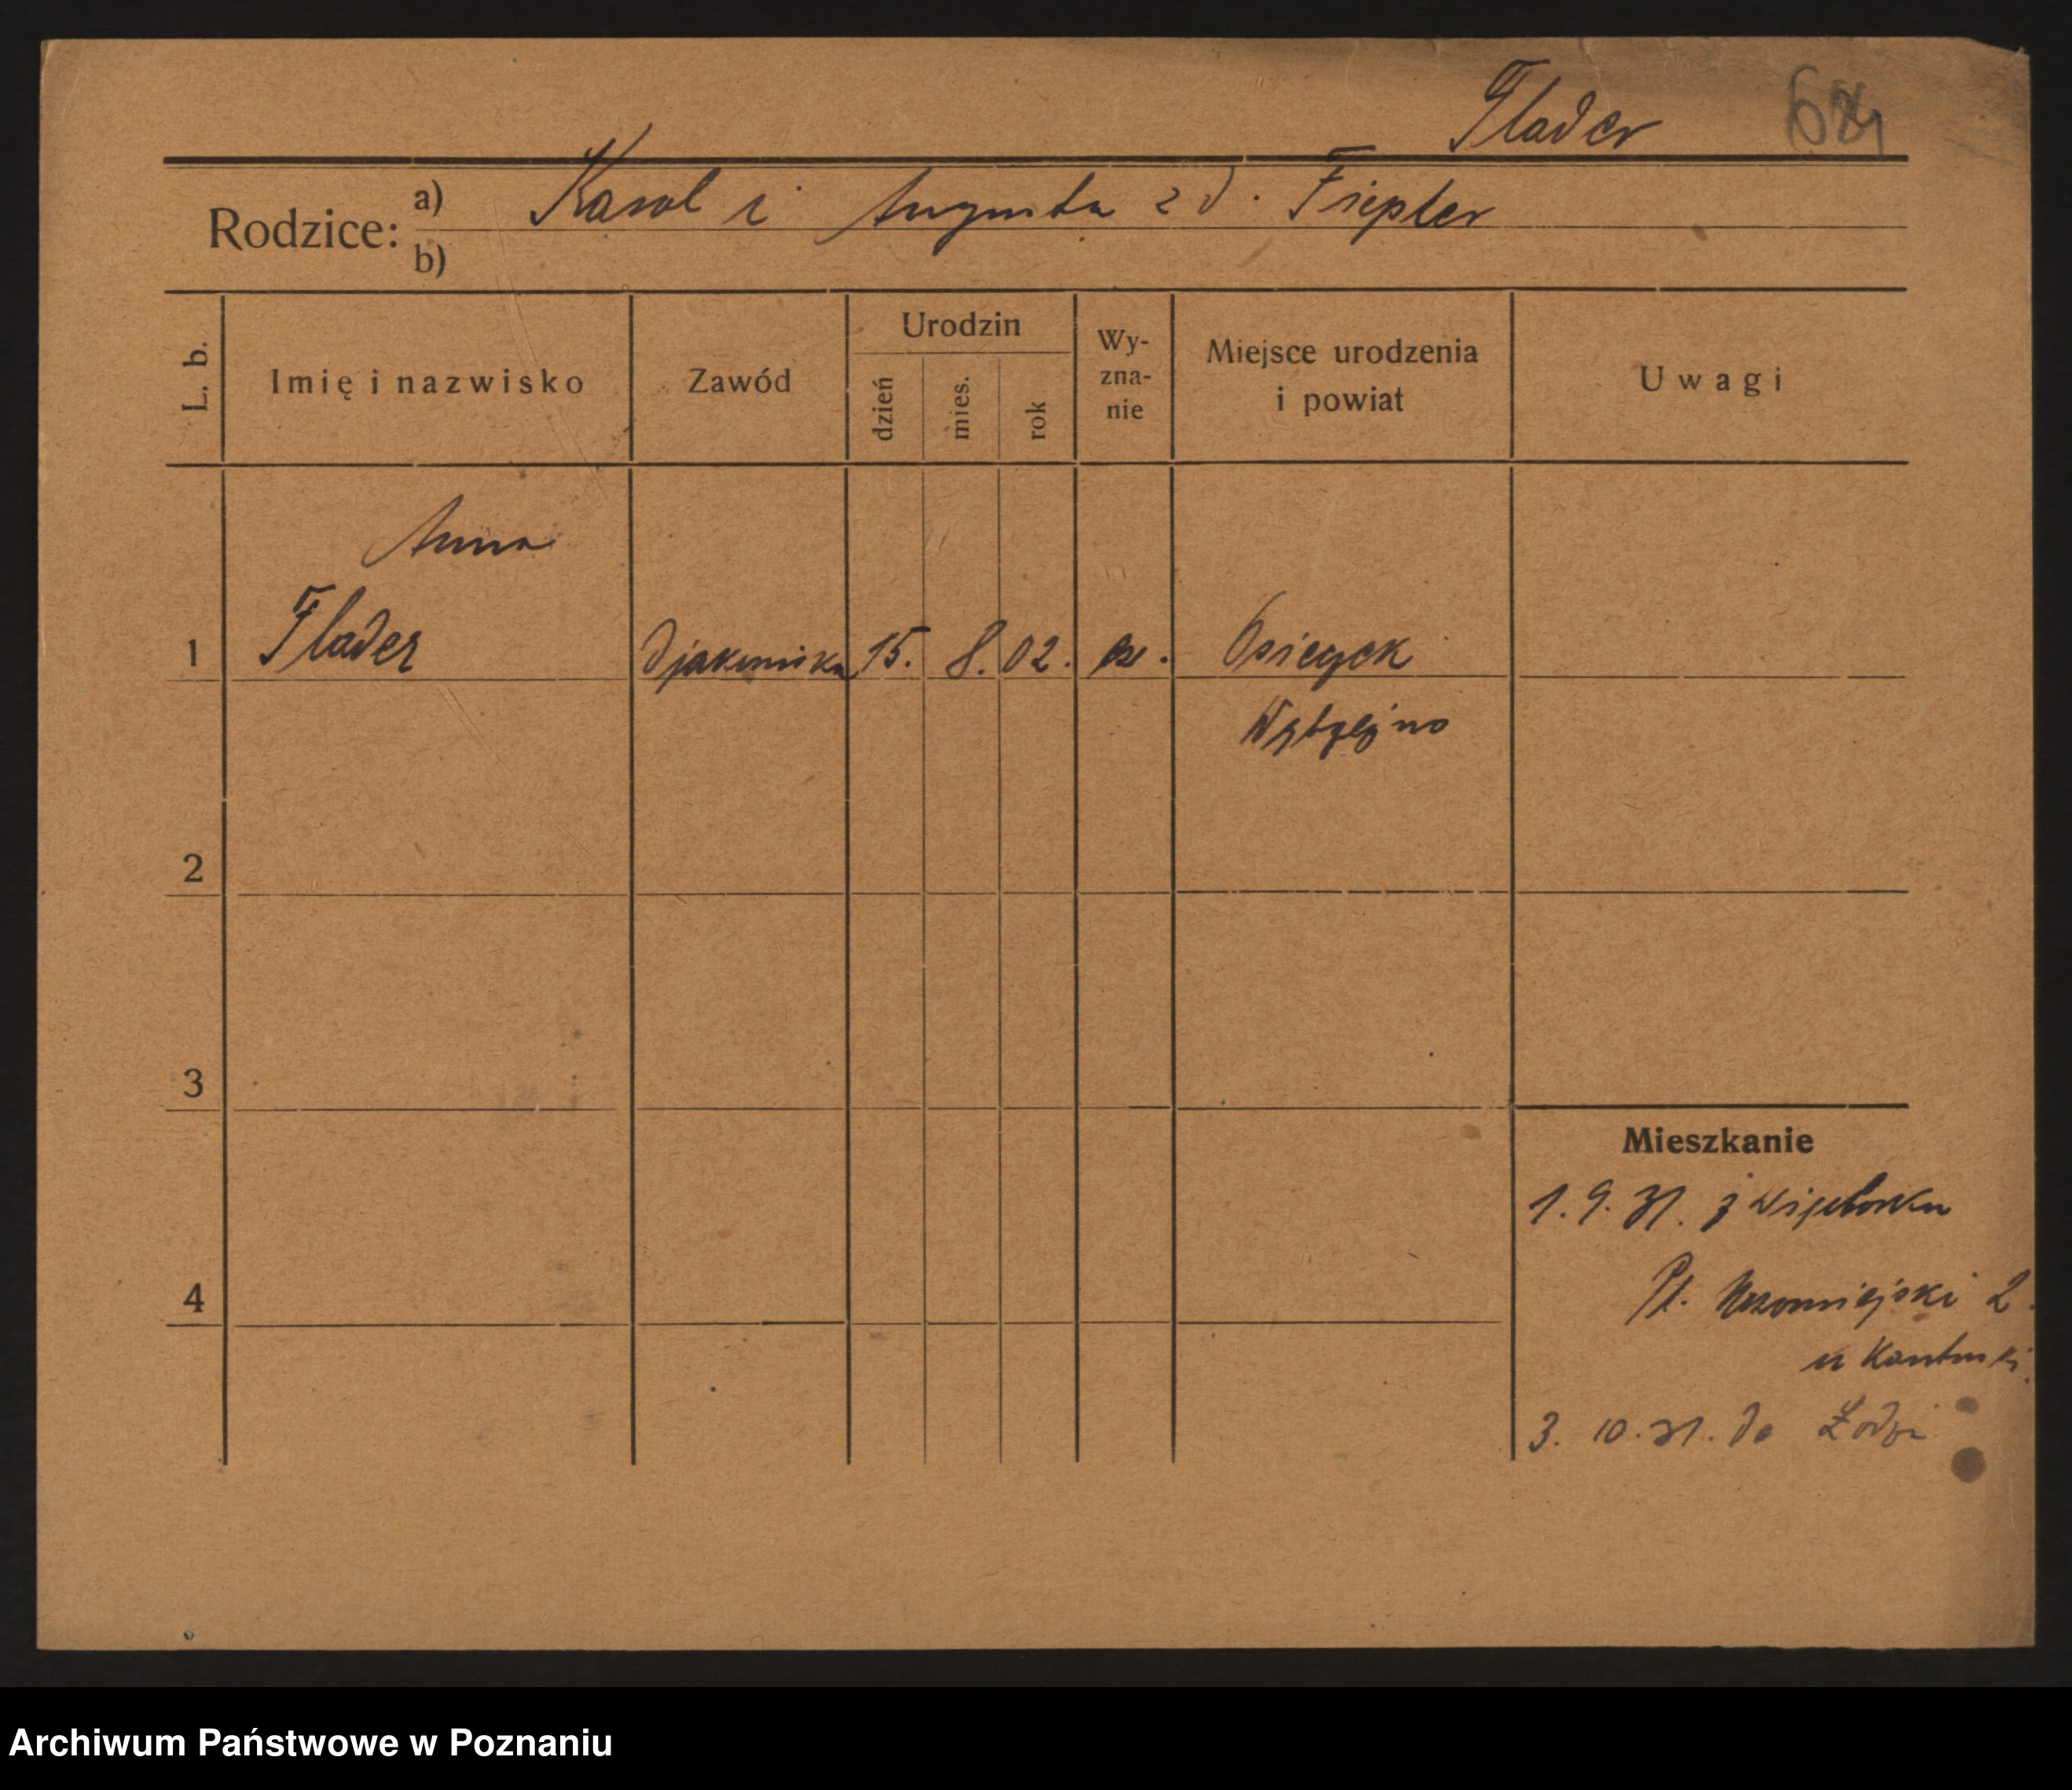 Flader
Rodzice: a) Karol i Augusta z d. Fiepler
b)
L. b. Imię i nazwisko Zawód Urodzin dzień mies. rok Wy-zna-nie Miejsce urodzenia i powiat Uwagi
Anna
1 Flader Djakoniska 15. 8. 02. ew. Osieczek
Wąbrzeźno
2
3
Mieszkanie
1. 9. 31. z Więcborka
4
Pl. Nowomiejski 2.
u
3. 10. 31. do Łodzi
Archiwum Państwowe w Poznaniu